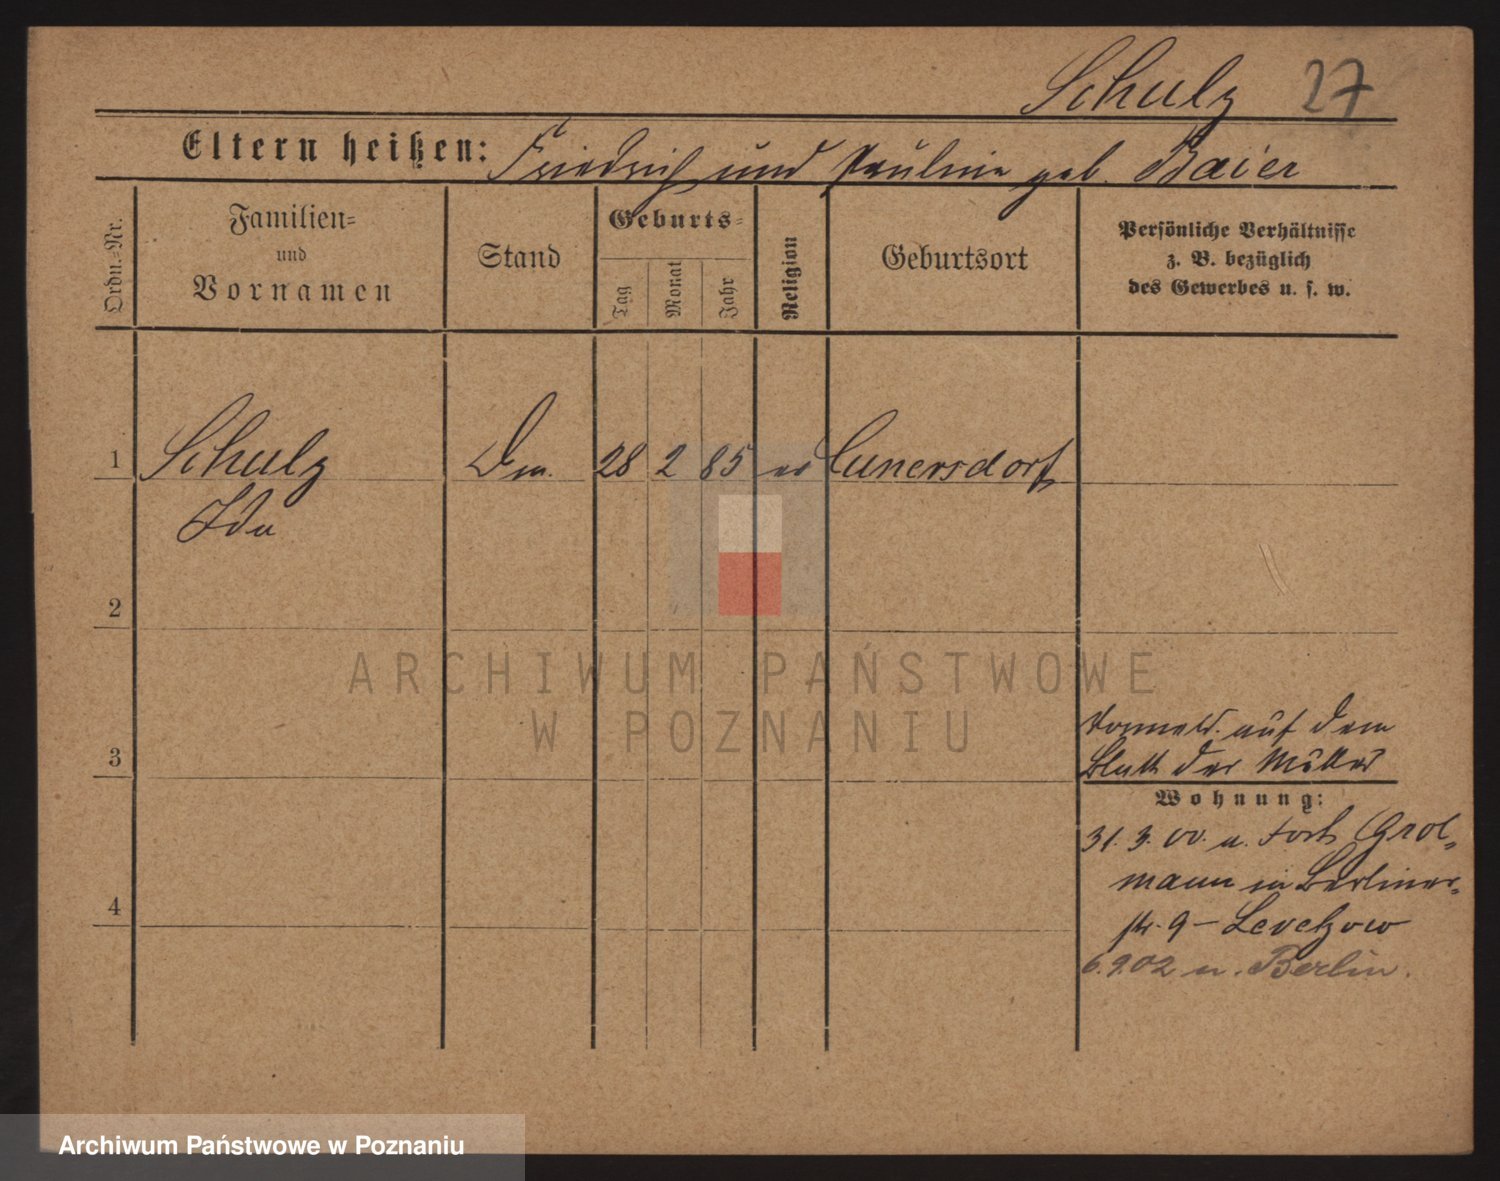 Schulz 27
Eltern heißen: Friedrich und Pauline geb. Baier
Ordn.-Nr.
Familien-
und
Vornamen
Stand
Geburts-
Tag
Monat
Jahr
Religion
Geburtsort
Persönliche Verhältnisse
z. B. bezüglich
des Gewerbes u. s. w.
1 Schulz 28 2 85 ev Cunersdorf
Ida
2
3
auf dem
Blatt der Mutter
Wohnung:
31. 3. 00. n. Fort Grol-
mann in Berliner-
str. 9 - Levetzow
6.9.02 n. Berlin.
4
ARCHIWUM PAŃSTWOWE
W POZNANIU
Archiwum Państwowe w Poznaniu